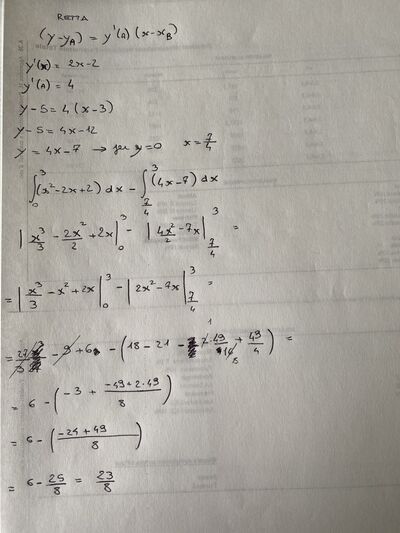 RETTA
(y-y_A) = y'(A) (x-x_B)
y'(x) = 2x-2
y'(A) = 4
y-5 = 4(x-3)
y-5 = 4x-12
y = 4x-7 → per y=0 x = 7/4
∫_0^3 (x²-2x+2) dx - ∫_{7/4}^3 (4x-7) dx
| x³/3 - 2x²/2 + 2x |_0^3 - | 4x²/2 - 7x |_{7/4}^3 =
= | x³/3 - x² + 2x |_0^3 - | 2x² - 7x |_{7/4}^3 =
= 27/3 - 9 + 6 - ( 18 - 21 - 2·49/16 8 + 49/4 ) =
= 6 - ( -3 + (-49+2·49)/8 )
= 6 - ( (-24+49)/8 )
= 6 - 25/8 = 23/8